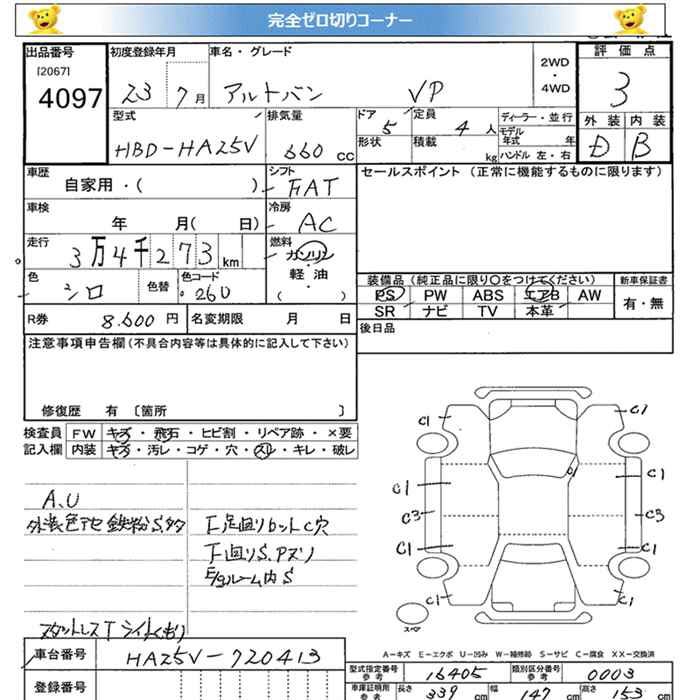 完全ゼロ切りコーナー
出品番号 初度登録年月 車名・グレード 2WD・4WD 評価点
[2067]
4097 23 7月 アルトバン VP 3
型式 排気量 ドア 定員 ディーラー・並行 外装 内装
HBD-HA25V 660 CC 5 4人 モデル年式 年 D B
形状 積載 kg ハンドル 左・右
車歴 シフト セールスポイント (正常に機能するものに限ります)
自家用・( ) FAT
車検 冷房
年 月( 日) AC
走行 燃料
3万4千273km ガソリン・軽油
色 色替 色コード ( )
シロ 26U
装備品 (純正品に限り○をつけてください) 新車保証書
PS PW ABS エアB AW 有・無
SR ナビ TV 本革
R券 8.600円 名変期限 月 日
後日品
注意事項申告欄(不具合内容等は具体的に記入して下さい)
修復歴 有 [箇所 ]
検査員 FW キズ・飛石・ヒビ割・リペア跡・×要
記入欄 内装 キズ・汚レ・コゲ・穴・スレ・キレ・破レ
A.U
外装色アセ 鉄粉 S.多
下足回りロット C穴
下回りS.Pズリ
E/gルーム内S
スタットレスT ライトくもり
C1 C1
C1 C1 C1
C3 C3
C1 C1
C1 C1
スペア
A-キズ E-エクボ U-凹み W-補修跡 S-サビ C-腐食 XX-交換済
車台番号 HA25V-720413
登録番号
型式指定番号 参考 16405 類別区分番号 参考 0003
車庫証明用 参考 長さ 339cm 幅 147cm 高さ 153cm